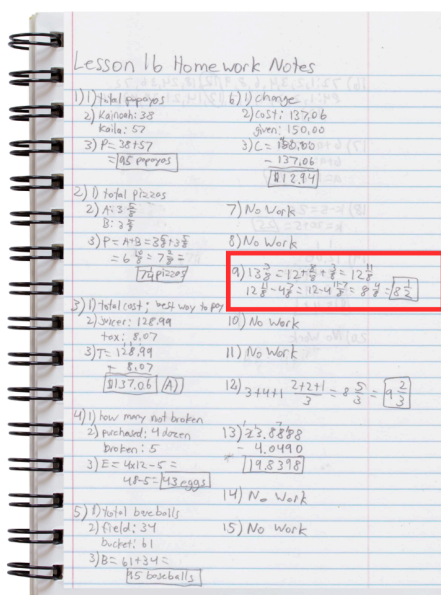 Lesson 16 Homework Notes
1) 1) total papayas
2) Kainoah: 38
Kaila: 57
3) P = 38+57
= 95 papayas
2) 1) total pizzas
2) A: 3 5/8
B: 3 5/8
3) P = A+B = 3 5/8 + 3 5/8
= 6 10/8 = 7 2/8 =
7 1/4 pizzas
3) 1) total cost; best way to pay
2) juicer: 128.99
tax: 8.07
3) T = 128.99
+ 8.07
$137.06 (A)
4) 1) how many not broken
2) purchased: 4 dozen
broken: 5
3) E = 4x12-5 =
48-5 = 43 eggs
5) 1) total baseballs
2) field: 34
bucket: 61
3) B = 61+34 =
95 baseballs
6) 1) change
2) cost: 137.06
given: 150.00
3) C = 150.00
- 137.06
$12.94
7) No Work
8) No Work
9) 13 3/8 = 12 + 8/8 + 3/8 = 12 11/8
12 11/8 - 4 7/8 = 12-4 11-7/8 = 8 4/8 = 8 1/2
10) No Work
11) No Work
12) 3+4+1 2+2+1/3 = 8 5/3 = 9 2/3
13) 23.8888
- 4.0490
19.8398
14) No Work
15) No Work